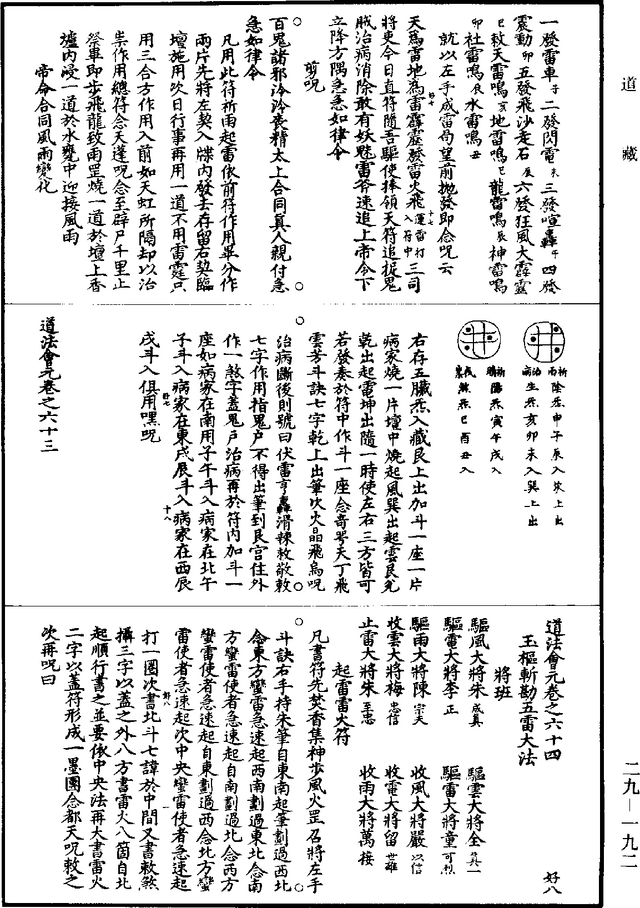 道藏
一發雷車子二發閃電未三發喧轟午四發
震動卯五發飛沙走石辰六發狂風大霹靂
巳敕天雷鳴亥地雷鳴巳龍雷鳴辰神雷鳴
卯社雷鳴辰水雷鳴丑
就以左手成雷局望前拋發即念呪云
天爲雷地爲雷霹靂發雷火飛運雷打入符中三司
將吏今日直符隨吾驅使捧領天符追捉鬼
賊治病消除敢有妖魅雷斧速追上帝令下
立降方隅急急如律令
剪呪
百鬼諸邪泠泠喪精太上合同真人親付急
急如律令
凡用此符祈雨起雷依前符作用畢分作
兩片先將左契入牒内發去存留右契臨
壇施用次日行事再用一道不用雷霆只
用三合方作用入前如天虹所隔却以治
祟作用總符念天蓬呪念至辟尸千里止
祭畢即步飛龍致雨罡燒一道於壇上香
爐内浸一道於水甕中迎接風雨
帝命合同風雨變化
祈雨陰炁申子辰入坎上出
治病生炁亥卯未入巽上出
祈晴陽炁寅午戌入
伐祟煞炁巳酉丑入
右存五臟炁入藏艮上出加斗一座一片
病家燒一片壇中燒起風巽出起雲艮兌
乾出起電坤出隨一時使左右三方皆可
若發奏於符中作斗一座念奇咢天丁飛
雲芳斗訣七字乾上出筆炊火晶飛烏呪
治病斷後則號曰伏雷亨轟滑辣敕敬敕
七字作用指鬼户不得出筆到艮宫住外
作一煞字蓋鬼户治病再於符内加斗一
座如病家在南用子午斗入病家在北午
子斗入病家在東戌辰斗入病家在西辰
戌斗入俱用嘿呪
道法會元卷之六十三
道法會元卷之六十四
玉樞斬勘五雷大法
將班
驅風大將朱成真
驅雲大將全真一
驅電大將李正
驅雷大將童可利
驅雨大將陳宗夫
收風大將嚴以信
收雲大將梅忠信
收電大將留世雄
止雷大將朱至忠
收雨大將萬接
起雷雷火符
凡書符先焚香集神步風火罡召將左手
斗訣右手持朱筆自東南起筆劃過西北
念東方蠻雷急速起西南劃過東北念南
方蠻雷使者急速起自南劃過北念西方
蠻雷使者急速起自東劃過西念北方蠻
雷使者急速起次中央蠻雷使者急速起
打一圈次書北斗七諱於中間又書敕煞
攝三字以蓋之外八方書雷火八箇自北
起順行書之並要依中央法再大書雷火
二字以蓋符形成一墨團念都天呪敕之
次再呪曰
好八
二九—一九二